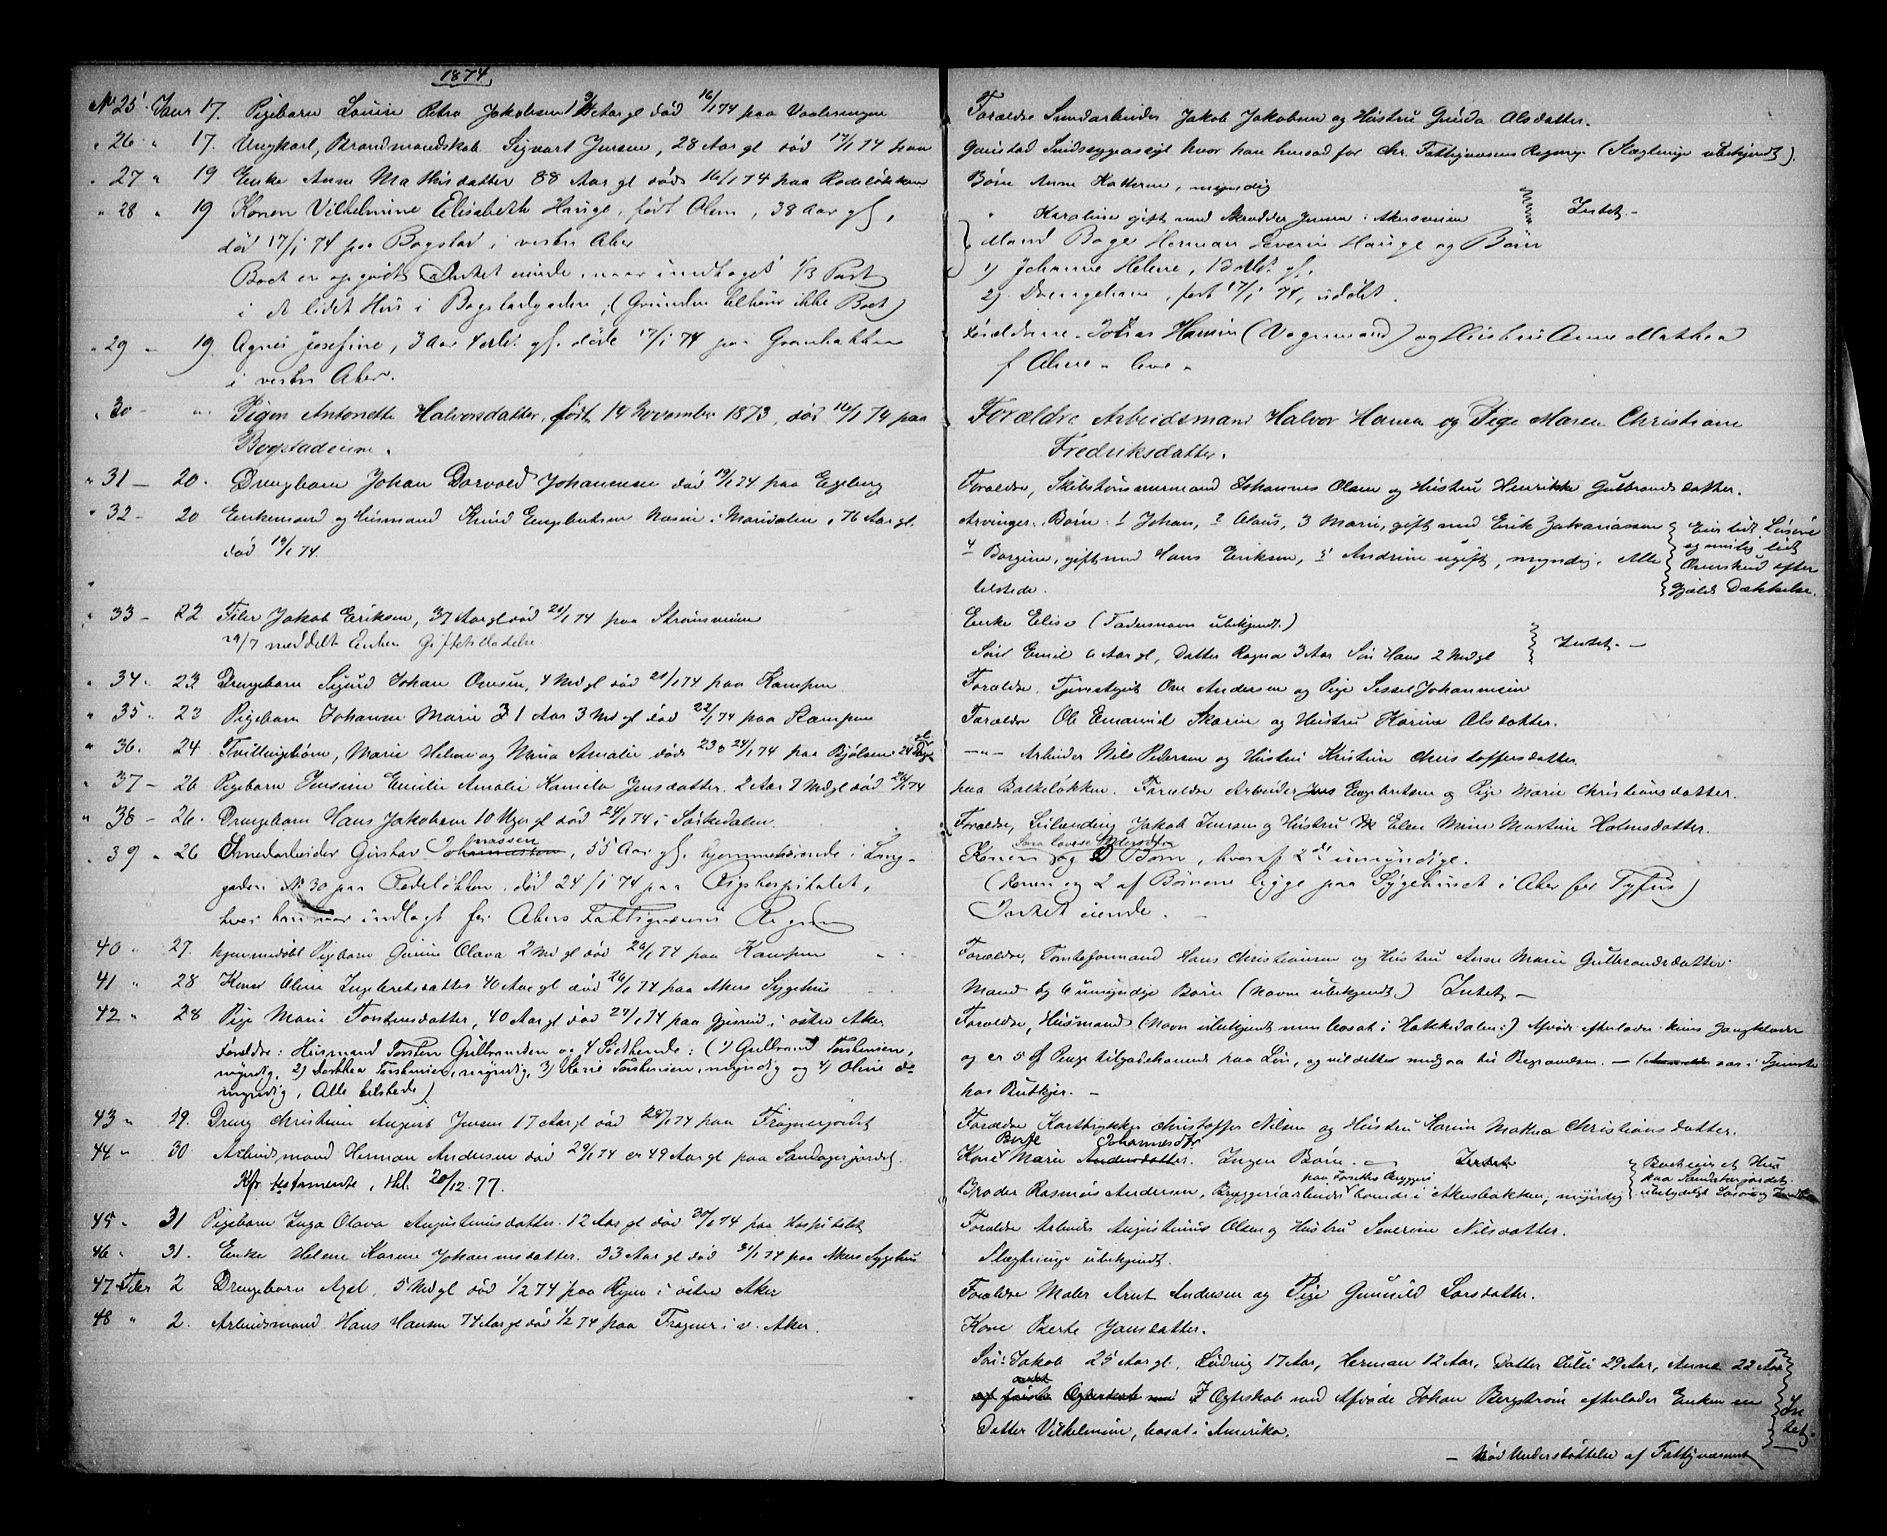 1874
No 25 Janr 17. Pigebarn Louise Petra Jakobsen 1 3/4 Aar gl død 16/1 74 paa Vaalerengen
Forældre Jakob Jakobsen og Hustru Olsdatter.
" 26 " 17. Ungkarl, Brandmandskab Sigvart Jensen, 28 Aar gl død 14/1 74 paa
Gaustad Sindssygeasyl hvor han hensad for Chr. Fattigvæsens Regning (Slægtninge ubekjendt).
" 27 " 19 Enke Anne Mathisdatter 88 Aar gl død 16/1 74 paa Rodeløkken
Børn Anne Kathrine, myndig
" Karoline gift med Skrædder Jensen i Akersveien Intet -
" 28 " 19 Konen Vilhelmine Elisabeth Hauge, født Olsen, 38 Aar gl,
død 17/1 74 paa Bogstad i vestre Aker
Mand Bager Herman Severin Hauge og Børn
1) Johanne Helene,
2) Drengebarn, født 17/1 74, udøbt.
Boet er opgivet Intet eiende, naar undtages 1/3 Part
i et lidet Hus i Bogstadgaden, (Grunden tilhører ikke Boet)
" 29 " 19. Agnes Josefine, 3 Aar 4 Md. gl. døde 17/1 74 paa Granbakken
i vestre Aker.
Forældrene Tobias Hansen (Vognmand) og Hustru Anne Mathea
f Olsen leve
" 30 - " Pigen Antonette Halvorsdatter, født 14 November 1873, død 16/1 74 paa
Bogstadveien.
Forældre Arbeidsmand Halvor Hansen og Pige Maren Christiane
Fredriksdatter.
" 31 - 20. Drengbarn Johan Dorvald Johannesen død 19/1 74 paa Egeberg
Forældre, Johannes Olsen og Hustru Henrikke Gulbrandsdatter.
" 32 - 20 Enkemand og Husmand Knud Engebretsen Næsen i Maridalen, 76 Aar gl.
død 19/1 74.
Arvinger. Børn: 1 Johan, 2 Olaus, 3 Marie, gift med Erik Zakariassen
4 Børgine, gift med Hans Eriksen, 5 Andrine ugift, myndig. Alle
tilstede.
Eier lidt Løsøre
og mulig lidt
Overskud efter
Gjelds Dækkelse.
" 33 - 22 Filer Jakob Eriksen, 37 Aar gl død 20/1 74 paa Strømsveien
29/7 meddelt Enken
Enke Elise (Fadersnavn ubekjendt.)
Søn Emil 6 Aar gl, Datter Ragna 3 Aar Søn Hans 2 Md gl Intet. -
" 34 " 23. Drengebarn Sigurd Johan Ovesen, 4 Md gl død 21/1 74 paa Kampen
Forældre. Ove Andersen og Pige Sissel Johannesen
" 35 " 23 Pigebarn Johanne Marie 1 Aar 3 Md gl død 22/1 74 paa Kampen
Forældre Ole Emanuel og Hustru Karine Olsdatter.
" 36. 24 Tvillingbørn, Marie Helene og Maria Amalie døde 23 & 24/1 74 paa Bjølsen
-"- Arbeider Nils Pedersen og Hustru Kristine Christoffersdatter.
" 37 - 26 Pigebarn Jensine Emilie Amalie Kamilla Jensdatter. 2 Aar 7 Md gl død 24/1 74
paa Balkeløkken. Forældre Arbeider Jens Engebretsen og Pige Marie Christiansdatter.
" 38 - 26. Drengebarn Hans Jakobsen 10 Uger gl død 24/1 74 i Sørkedalen
Forældre, Jakob Jensen og Hustru Elen Marie Martine Holmsdatter.
" 39 " 26 Smedarbeider Gustav Johannesen Jonassen, 55 Aar gl, hjemmehørende i
gaden No 30 paa Rodeløkken død 24/1 74 paa Rigshospitalet,
hvor han var indlagt for Akers Fattigvæsens Regning
Konen og Børn, hvoraf 2 umyndige.
(Konen og 2 af Børnene ligge paa Sygehuset i Aker for Tyfus)
Intet eiende. -
40 " 27. hjemmedøbt Pigebarn Olava 2 Md gl død 26/1 74 paa Kampen
Forældre, Tomteformand Hans Christiansen og Hustru Anne Marie Gulbrandsdatter.
41 " 28 Kone Oline Ingebretsdatter 40 Aar gl død 26/1 74 paa Akers Sygehus
Mand og 6 umyndige Børn (Navne ubekjendt.) Intet -
42 " 28 Pige Marie Torstensdatter, 40 Aar gl død 27/1 74 paa i østre Aker
Forældre: Husmand Torsten Gulbrandsen og 4 Sødskende: (1) Gulbrand Torstensen,
myndig, 2) Dorthea Torstensen, myndig, 3) Marie Torstensen, myndig og 4) Oline
myndig, Alle tilstede)
Forældre, Husmand (Navn ubekjendt men bosat i Hakkedalen.) Afdøde efterlader kun Gangklæder
og er 5 Penge tilgodehavende paa Løn, og vil dette medgaa til Begravelsen. - var i Tjeneste
hos
43 " 29. Dreng Christian August Jensen 17 Aar gl død 28/1 74 paa Frognerjordet
Forældre Christoffer Nilsen og Hustru Karen Mathea Christiansdatter.
44 " 30 Arbeidsmand Herman Andersen død 29/1 74 er 49 Aar gl paa Sandagerjordet.
Kfr testamente, 20/12.77.
Kone Berte Marie Andersdatter. Johannesdtr. Ingen Børn. - Intet
Broder Rasmus Andersen, Bryggeriarbeider boende i Akersbakken, myndig
Boet eier et Hus
paa Sandakerjordet
45 " 31 Pigebarn Inga Olava Augustinusdatter. 12 Aar gl død 30/1 74 paa Hospitalet
Forældre Arbeider Augustinus Olsen og Hustru Severine Nilsdatter.
46 " 31. Enke Helene Karine Johannesdatter. 33 Aar gl død 31/1 74 paa Akers Sygehus
Slægtninge ubekjendt.
47 Febr 2 Drengebarn Axel. 5 Md gl død 1/2 74 paa Ryen i østre Aker
Forældre Maler Arnt Andersen og Pige Gunnild Larsdatter.
48 " 2. Arbeidsmand Hans Hansen 74 Aar gl død 1/2 74 paa Frogner i v. Aker.
Kone Berte Jansdatter.
Søn: Jakob 25 Aar gl, Ludvig 17 Aar, Herman 12 Aar, Datter Julie 29 Aar, Anne 22 Aar
Ægteskab med Afdøde Johan Bergstrøm efterlader Enken en
Datter Vilhelmine, bosat i Amerika.
Intet.
- Nød Understøttelse af Fattigvæsenet